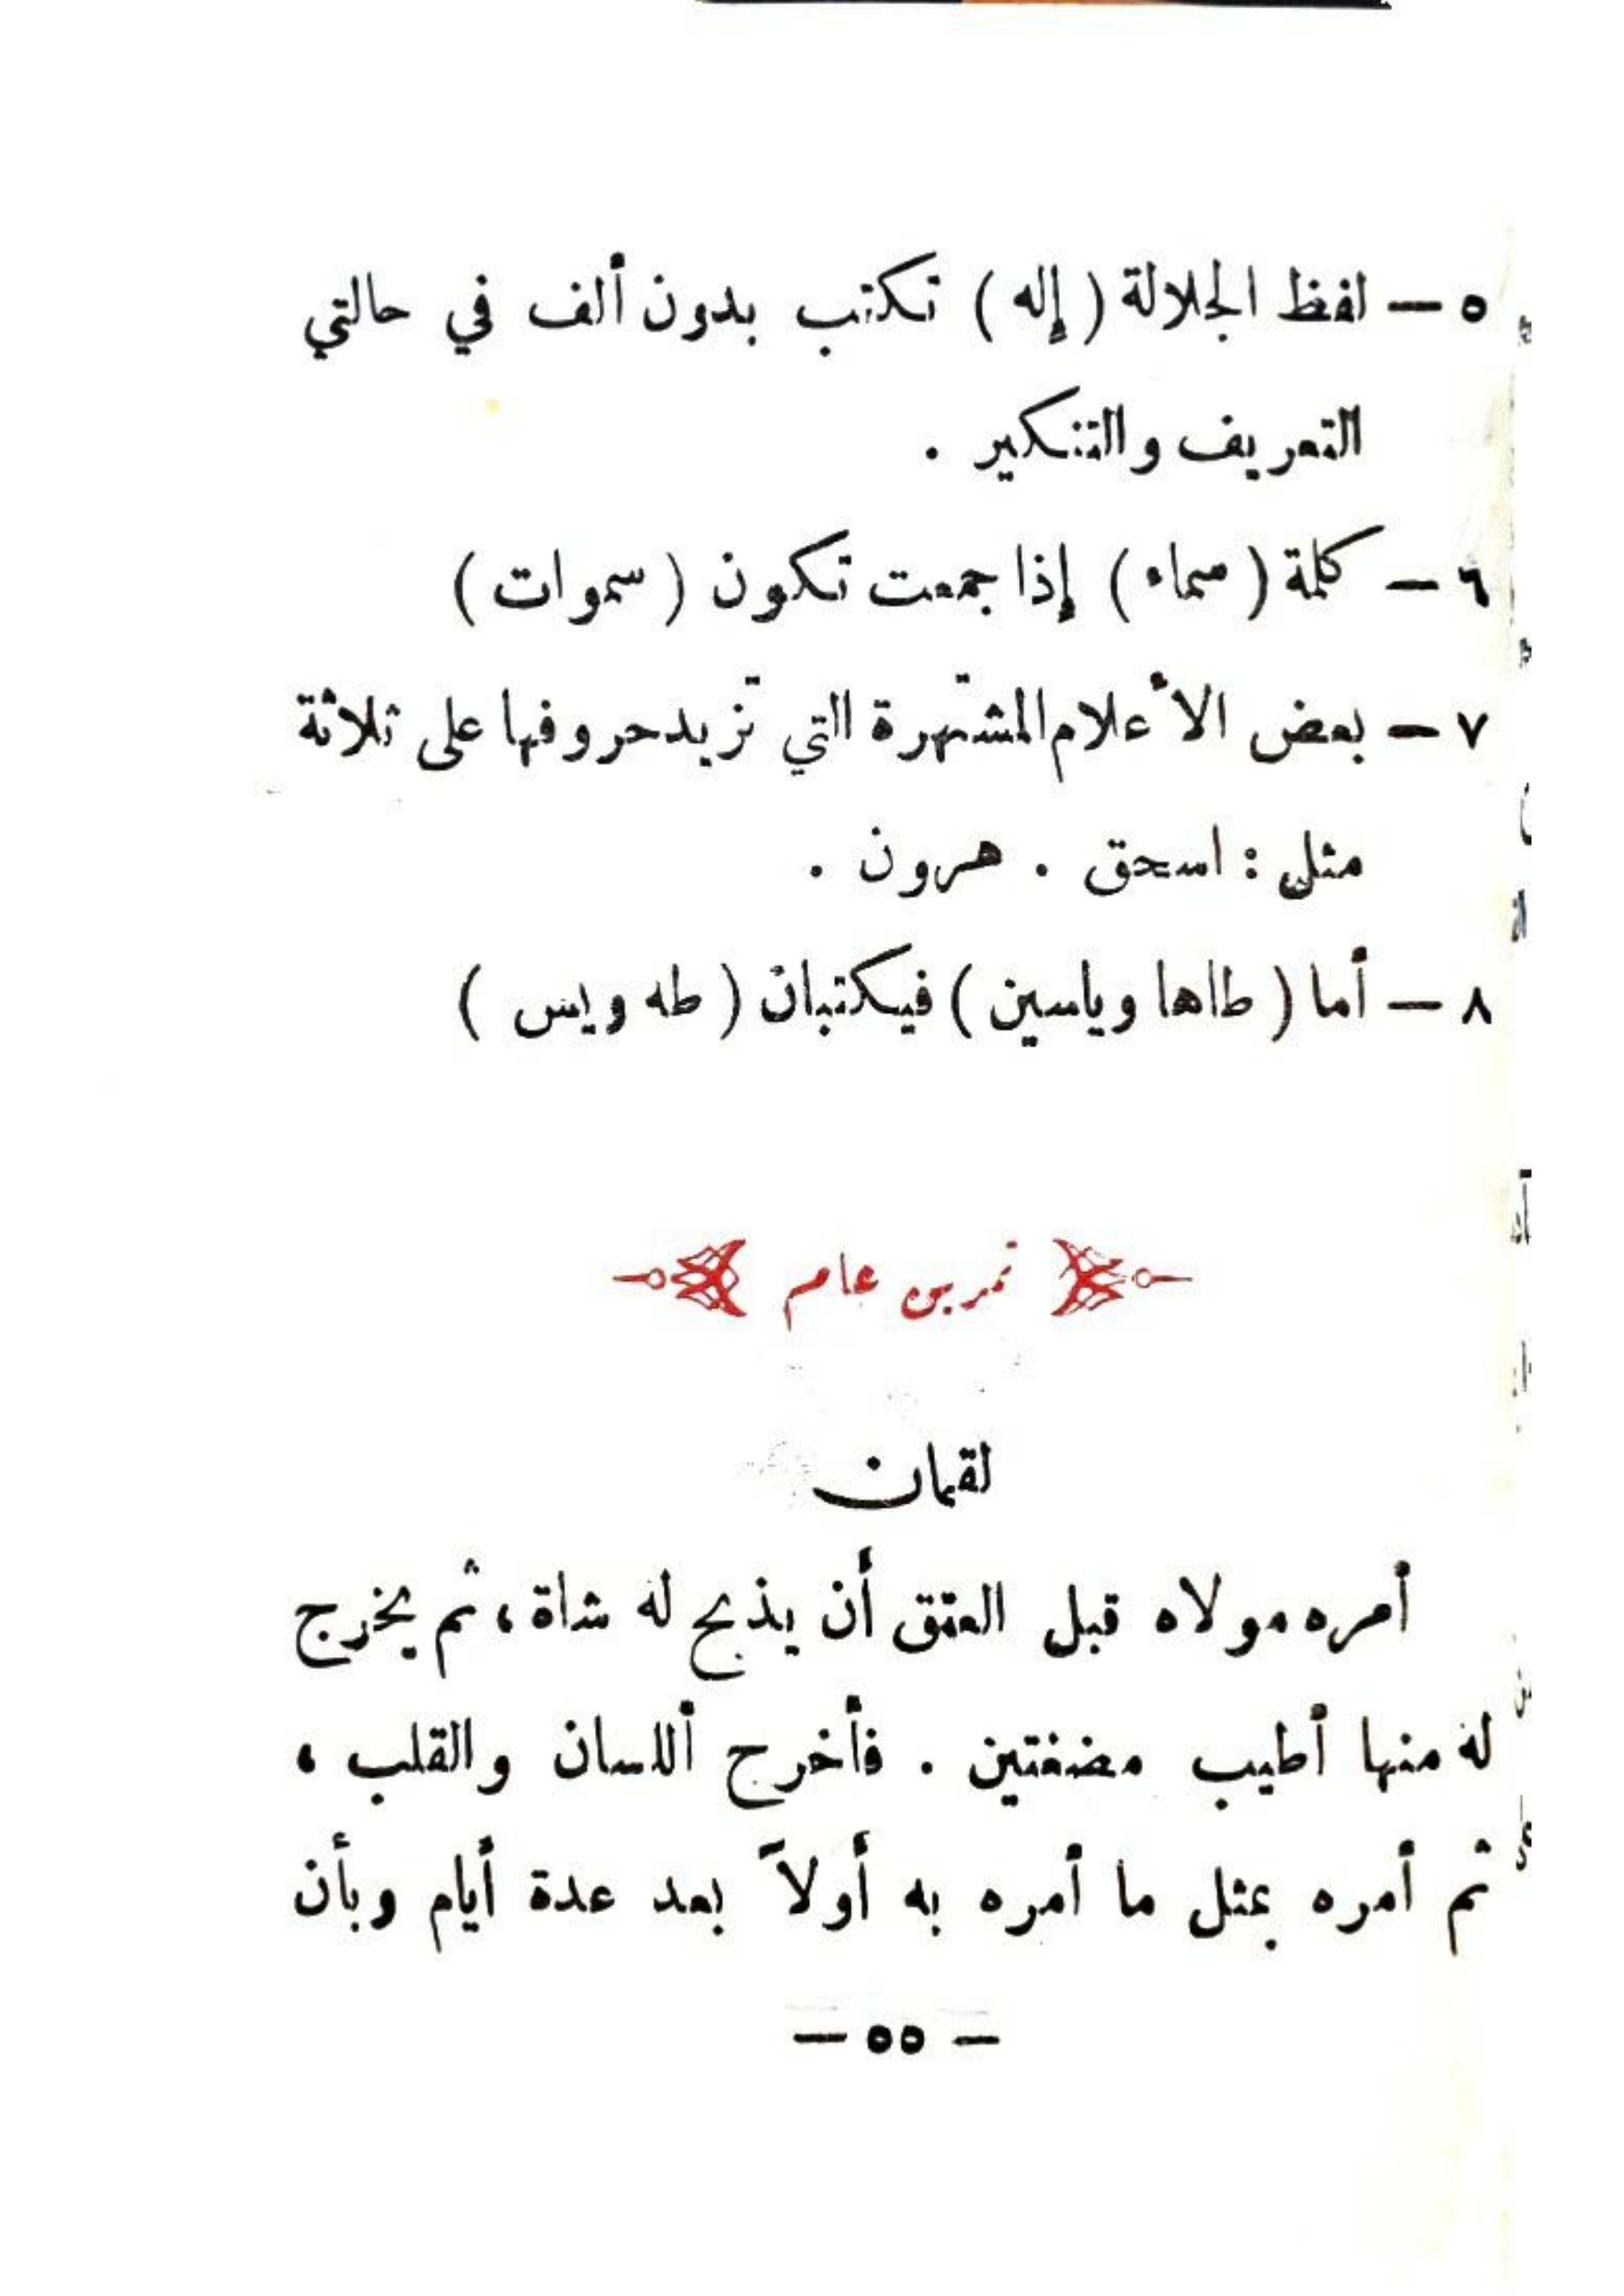 ٥ — لفظ الجلالة ( إله ) تكتب بدون ألف في حالتي
التعريف والتنكير .
٦ — كلمة ( سماء ) إذا جمعت تكون ( سموات )
٧ — بعض الأعلام المشتهرة التي تزيد حروفها على ثلاثة
مثل : اسحق . هرون .
٨ — أما ( طاها وياسين ) فيكتبان ( طه ويس )
تمرين عام
لقمان
أمره مولاه قبل العتق أن يذبح له شاة ، ثم يخرج
له منها أطيب مضغتين . فأخرج أللسان والقلب ،
ثم أمره بمثل ما أمره به أولاً بعد عدة أيام وبأن
— ٥٥ —